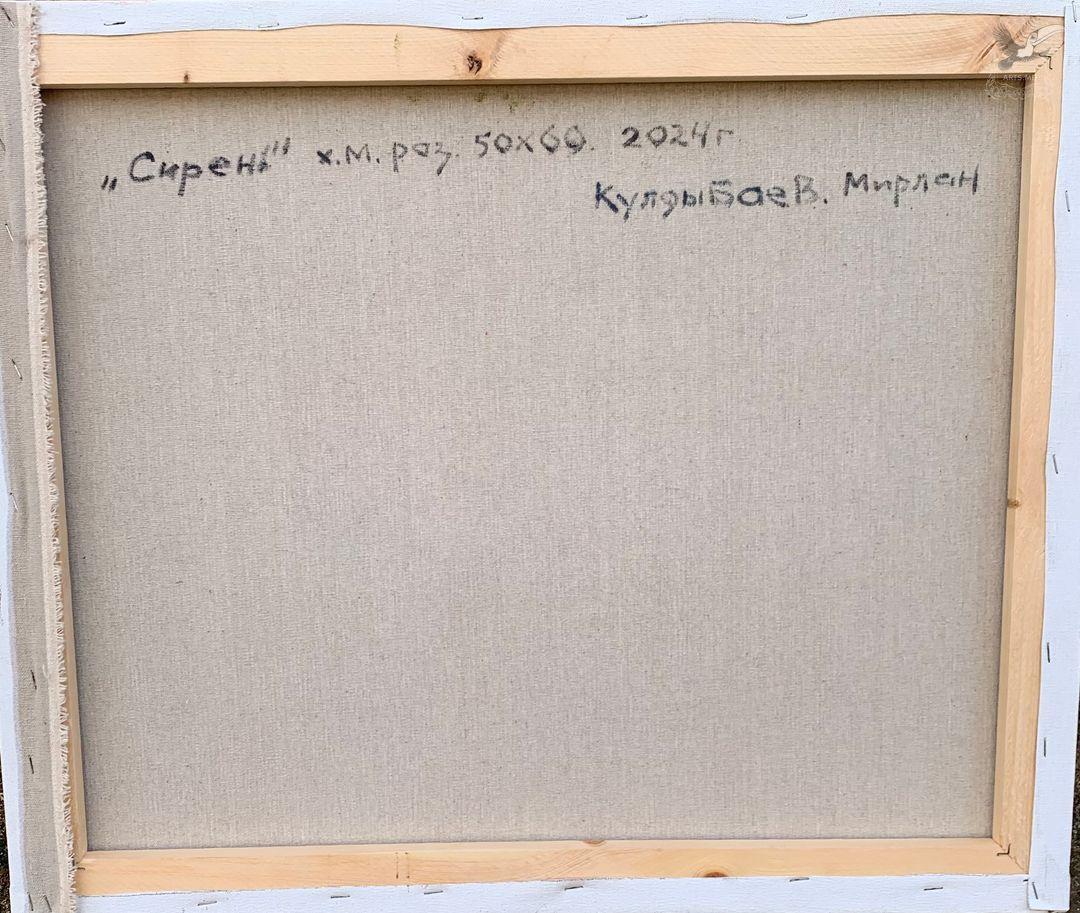 „Сирень" х.м. роз. 50х60. 2024г
КулдыБаеВ. Мирлан
ARTS.